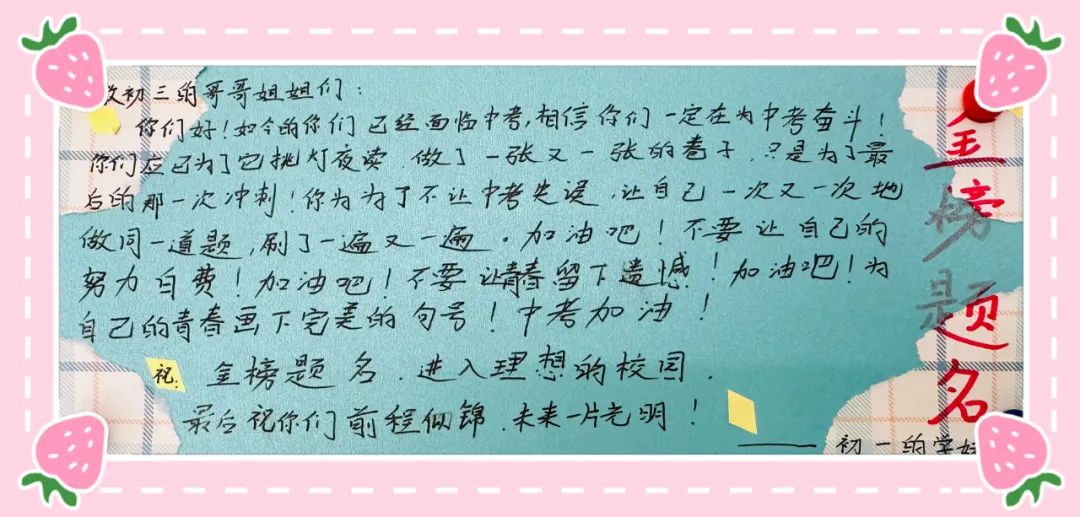 致初三的哥哥姐姐们：
你们好！如今的你们已经面临中考，相信你们一定在为中考奋斗！
你们应已为了它挑灯夜读 做了一张又一张的卷子，只是为了最
后的那一次冲刺！你为为了不让中考失误，让自己一次又一次地
做同一道题，刷了一遍又一遍。加油吧！不要让自己的
努力白费！加油吧！不要让青春留下遗憾！加油吧！为
自己的青春画下完美的句号！中考加油！
祝：金榜题名．进入理想的校园．
最后祝你们前程似锦．未来一片光明！
——初一的学妹
金榜题名